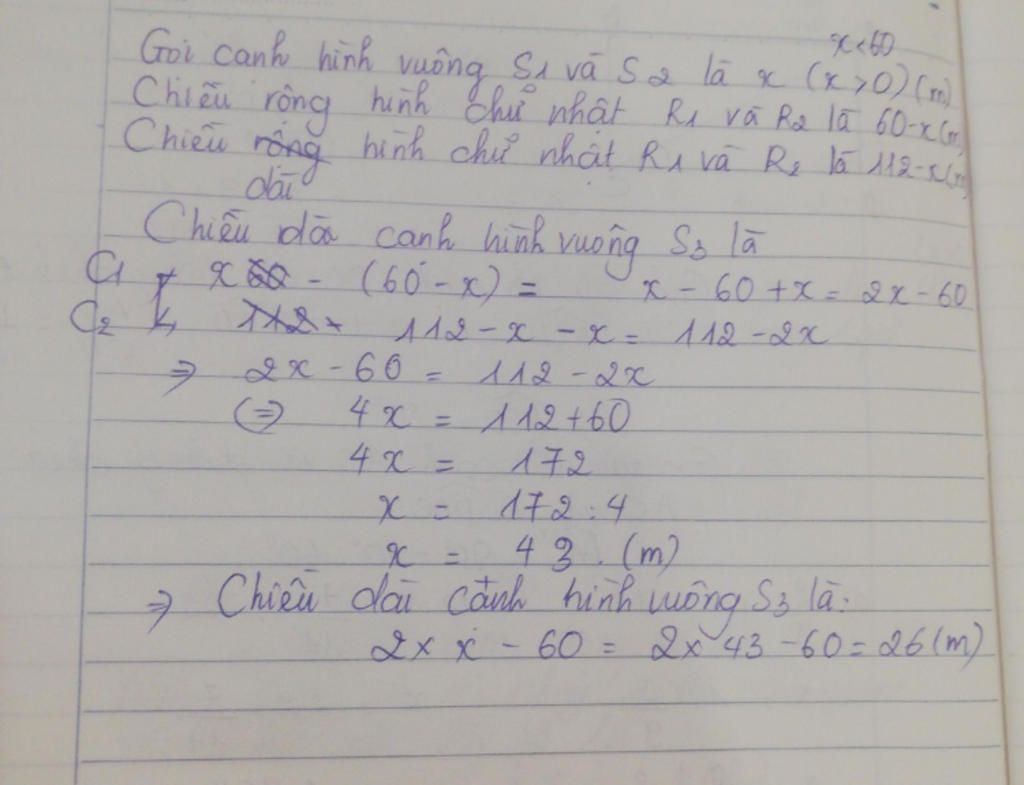 x<60
Gọi cạnh hình vuông S1 và S2 là x (x>0) (m)
Chiều rộng hình chữ nhật R1 và R2 là 60-x(m)
Chiều rộng hình chữ nhật R1 và R2 là 112-x(m)
dài
Chiều dài cạnh hình vuông S3 là
C1 x 60 - (60 - x) = x - 60 + x = 2x - 60
C2 112 - 112 - x - x = 112 - 2x
=> 2x - 60 = 112 - 2x
(=) 4x = 112 + 60
4x = 172
x = 172 : 4
x = 43 . (m)
=> Chiều dài cạnh hình vuông S3 là:
2 x x - 60 = 2 x 43 - 60 = 26 (m)